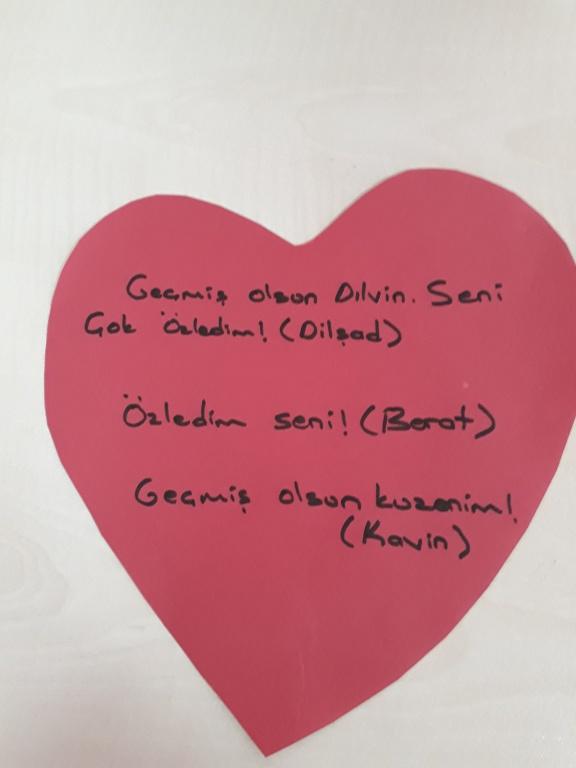 Geçmiş olsun Dılvin. Seni
Çok Özledim! (Dilşad)
Özledim seni! (Berat)
Geçmiş olsun kuzenim!
(Kavin)